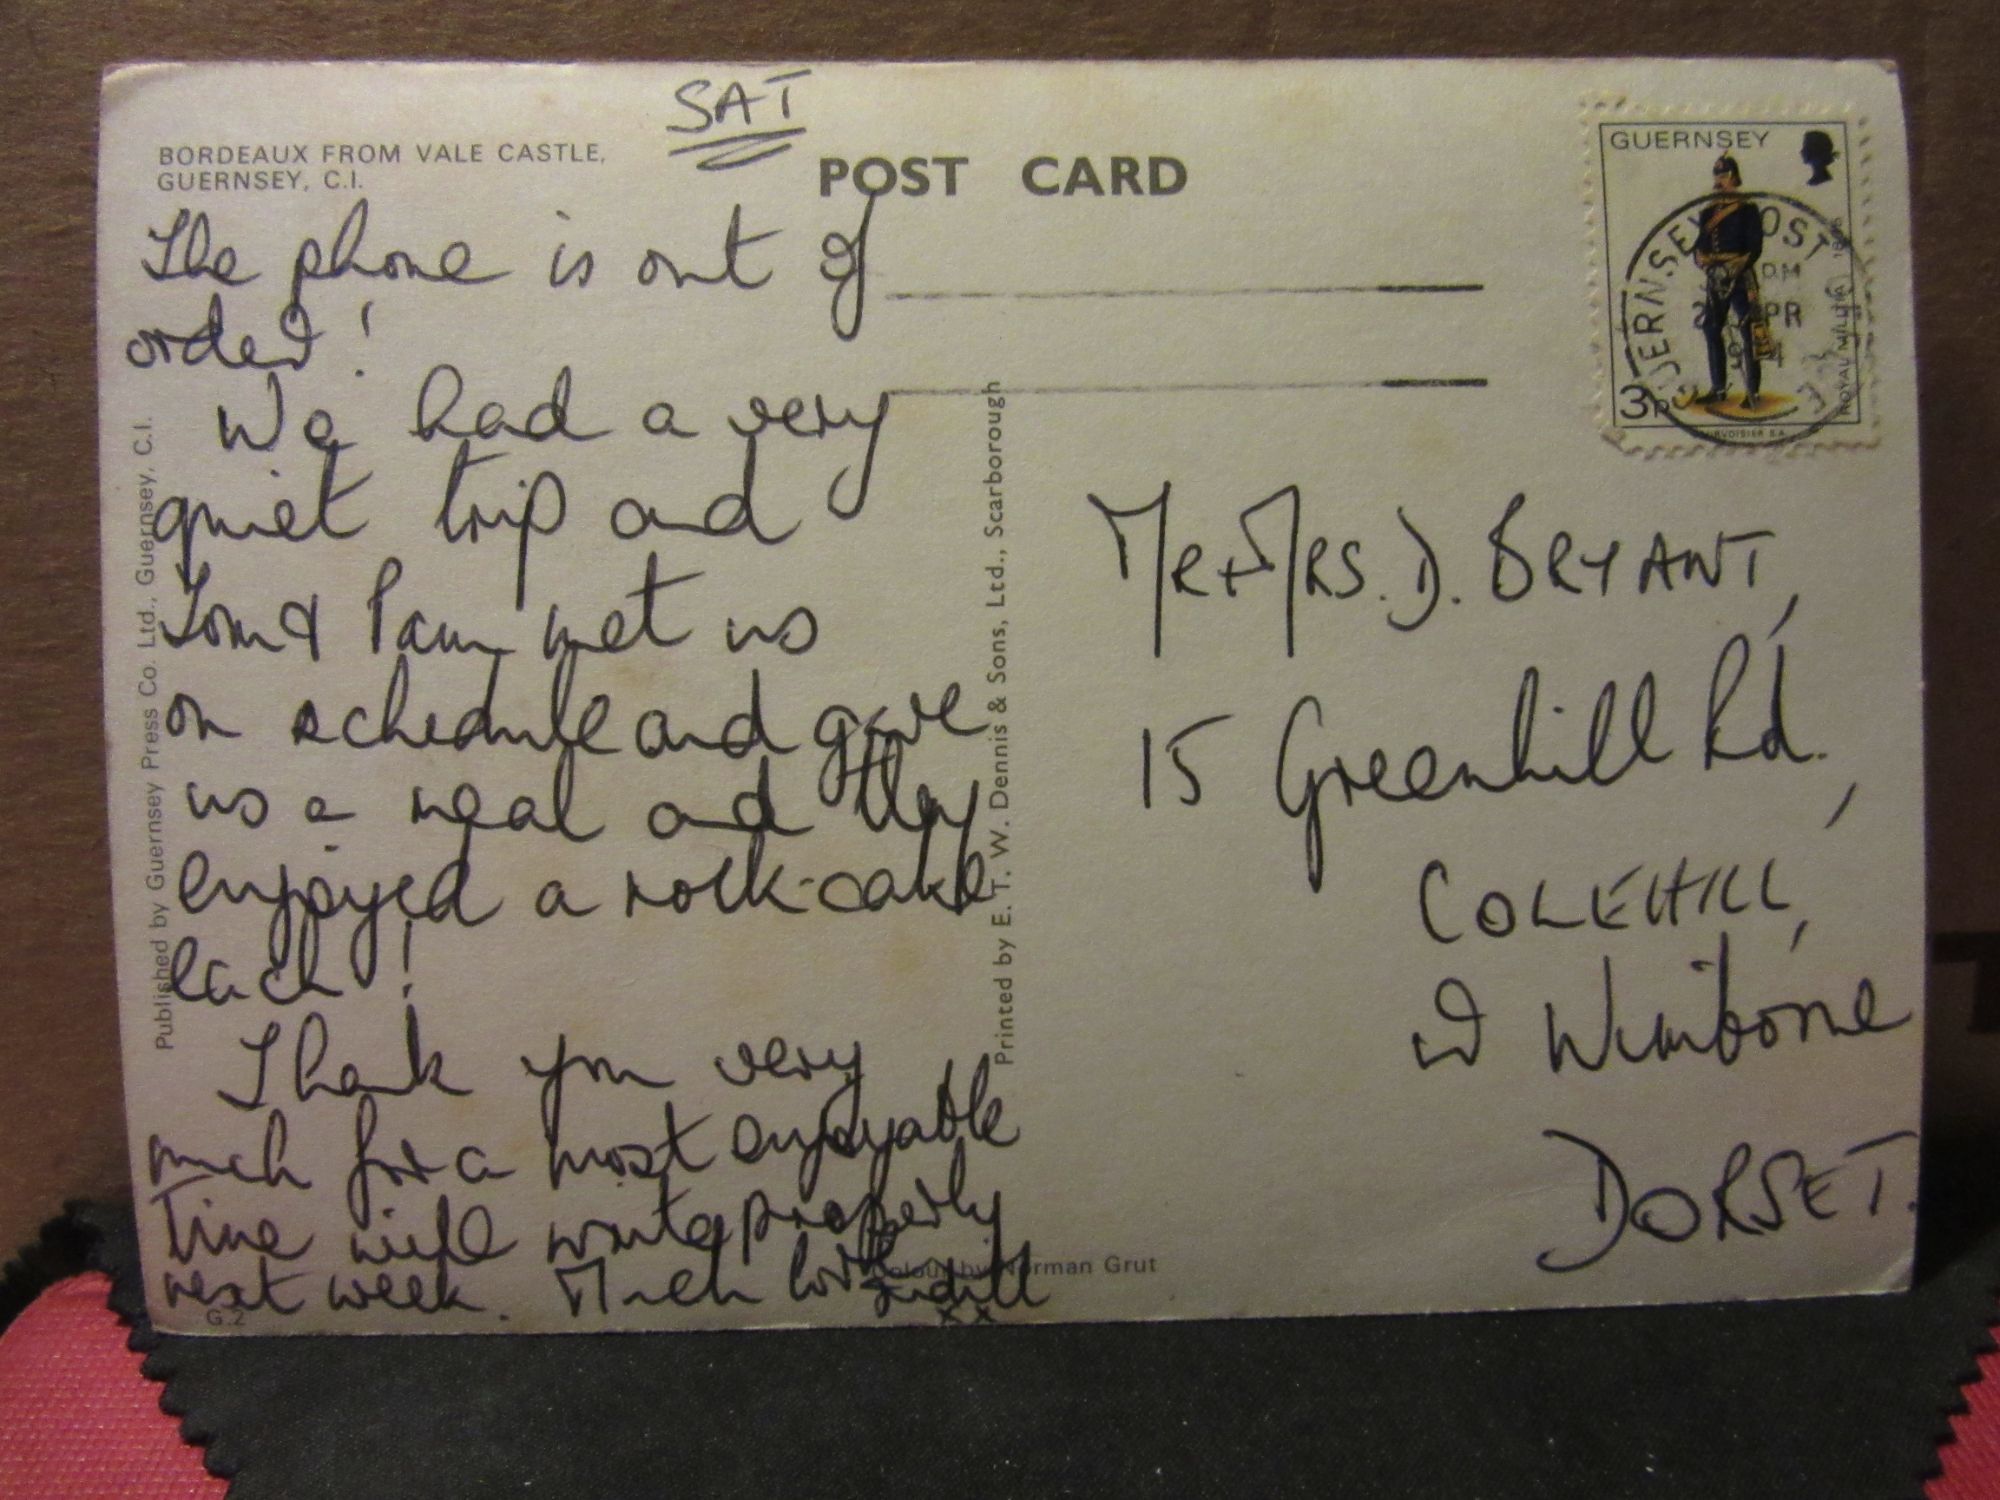 SAT
BORDEAUX FROM VALE CASTLE,
GUERNSEY, C.I.
POST CARD
The phone is out of
order!
We had a very
quiet trip and
Tom & Pam met us
on schedule and gave
us a meal and they
enjoyed a rock-cake
each!
Thank you very
much for a most enjoyable
time will write properly
next week. Much love
xx
G.2
Published by Guernsey Press Co. Ltd., Guernsey, C.I.
Printed by E. T. W. Dennis & Sons, Ltd., Scarborough
Colour by Norman Grut
GUERNSEY
GUERNSEY POST
PM
APR
3p
MR + MRS. D. BRYANT,
15 Greenhill Rd.,
COLEHILL,
Wimborne
DORSET.